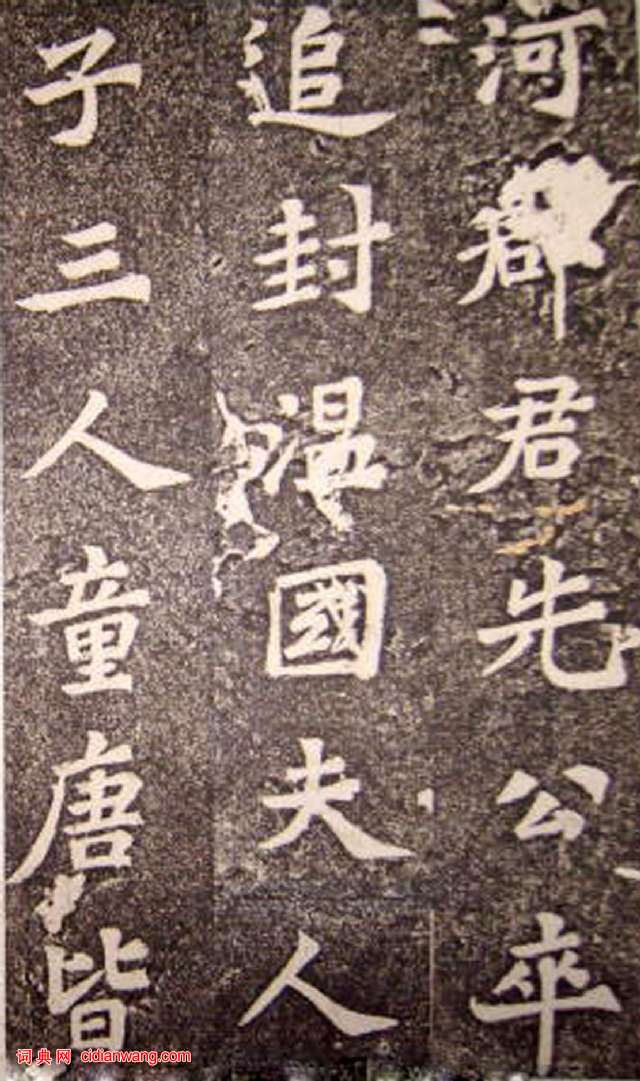 河郡君先公卒
追封温國夫人
子三人童唐皆
词典网 cidianwang.com